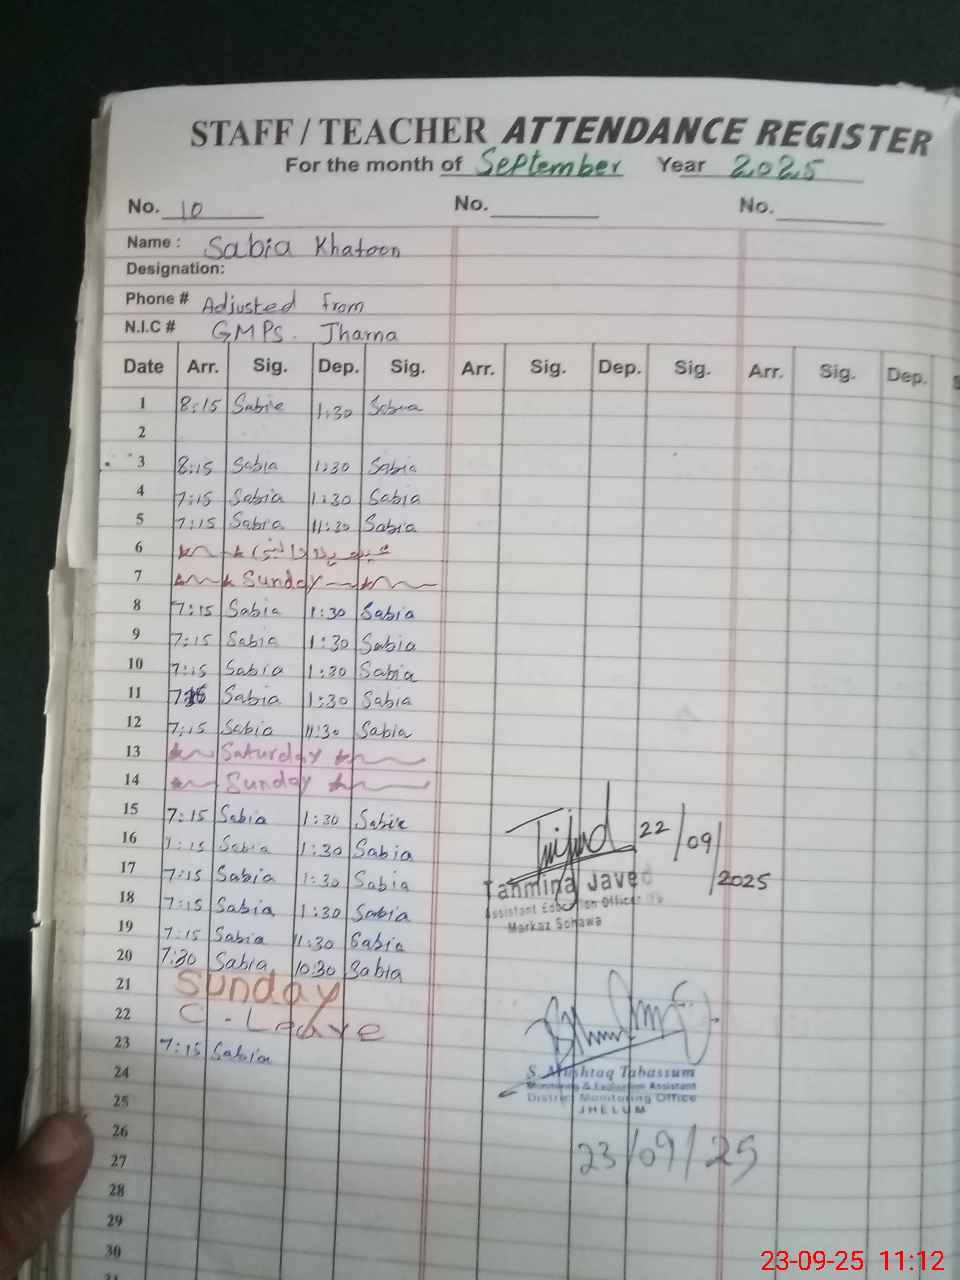 STAFF / TEACHER ATTENDANCE REGISTER
For the month of September Year 2025
No. 10 No. No.
Name : Sabia Khatoon
Designation:
Phone # Adjusted from
N.I.C # GMPS. Jharna
Date Arr. Sig. Dep. Sig. Arr. Sig. Dep. Sig. Arr. Sig. Dep. S
1 8:15 Sabia 1:30 Sabia
2
3 8:15 Sabia 1:30 Sabia
4 7:15 Sabia 1:30 Sabia
5 7:15 Sabia 11:30 Sabia
6
7 Sunday
8 7:15 Sabia 1:30 Sabia
9 7:15 Sabia 1:30 Sabia
10 7:15 Sabia 1:30 Sabia
11 7:15 Sabia 1:30 Sabia
12 7:15 Sabia 11:30 Sabia
13 Saturday
14 Sunday
15 7:15 Sabia 1:30 Sabia
16 7:15 Sabia 1:30 Sabia 22/09/2025
17 7:15 Sabia 1:30 Sabia
Tanmina Javed
18 7:15 Sabia 1:30 Sabia
Assistant Education Officer
Markaz Sohawa
19 7:15 Sabia 11:30 Sabia
20 7:30 Sabia 10:30 Sabia
21 Sunday
22 C. Leave
23 7:15 Sabia
S. Mushtaq Tabassum
24
Monitoring & Evaluation Assistant
District Monitoring Office
25
JHELUM
26
27 23/09/25
28
29
30
31
23-09-25 11:12